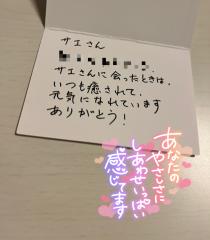 サエさん
サエさんに会ったときは、
いつも癒されて、
元気になれています
ありがとう！
あなたの
やさしさに
しあわせいっぱい
感じてます